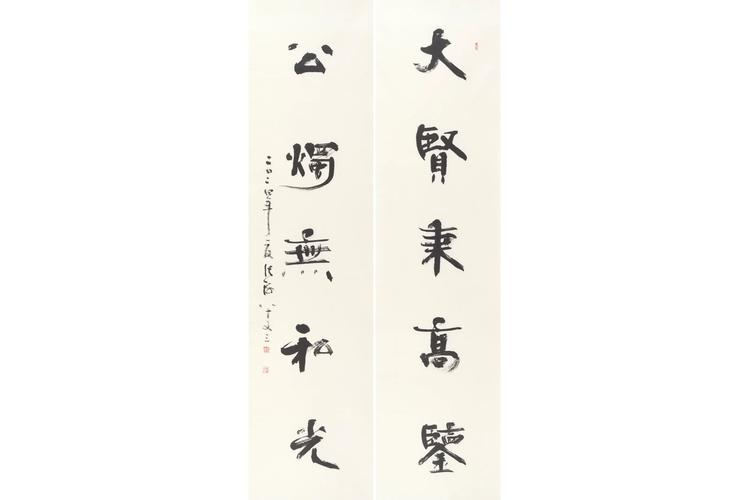 大賢秉高鑒
公燭無私光
二〇二四年夏
八十又三